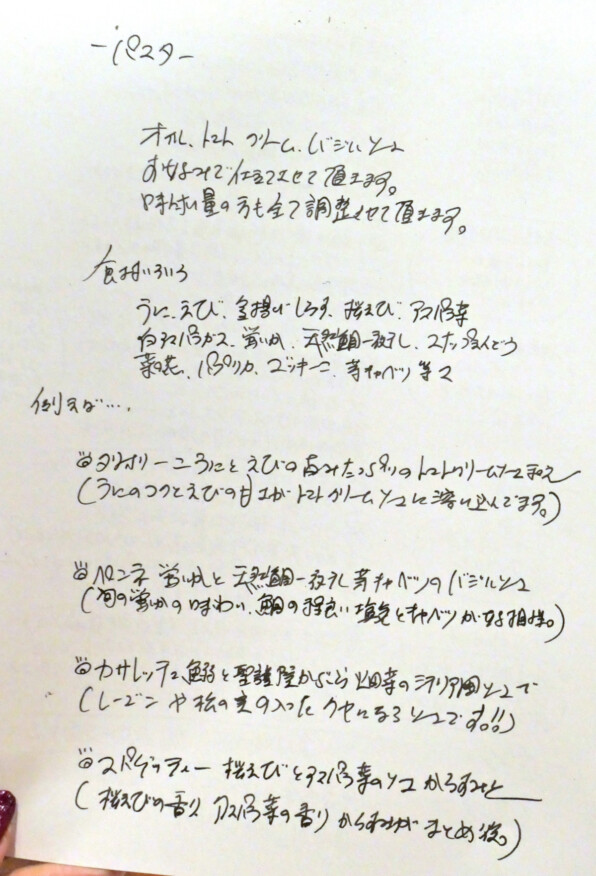 －パスタ－
オイル、トマト クリーム、バジルソース
お好みで仕立てさせて頂きます。
味わい量の方も全て調整させて頂きます。
食材いろいろ
うに、えび、釜揚げしらす、桜えび、アスパラ菜
白アスパラガス、蛍いか、天然鯛一夜干し、スナップえんどう
菜の花、パプリカ、ズッキーニ、芽キャベツ 等々
例えば…、
タリオリーニ うにとえびの旨みたっぷりのトマトクリームソース和え
(うにのコクとえびの甘さがトマトクリームソースに溶け込んでます。)
ペンネ 蛍いかと天然鯛一夜干し 芽キャベツのバジルソース
(旬の蛍いかの味わい、鯛の程良い塩気とキャベツが好相性。)
カサレッチェ 鰯と聖護院かぶら 畑菜のシチリア風ソースで
(レーズンや松の実の入ったクセになるソースです!!)
スパゲッティー 桜えびとアスパラ菜のソース からすみと
(桜えびの香り アスパラ菜の香り からすみがまとめ役。)